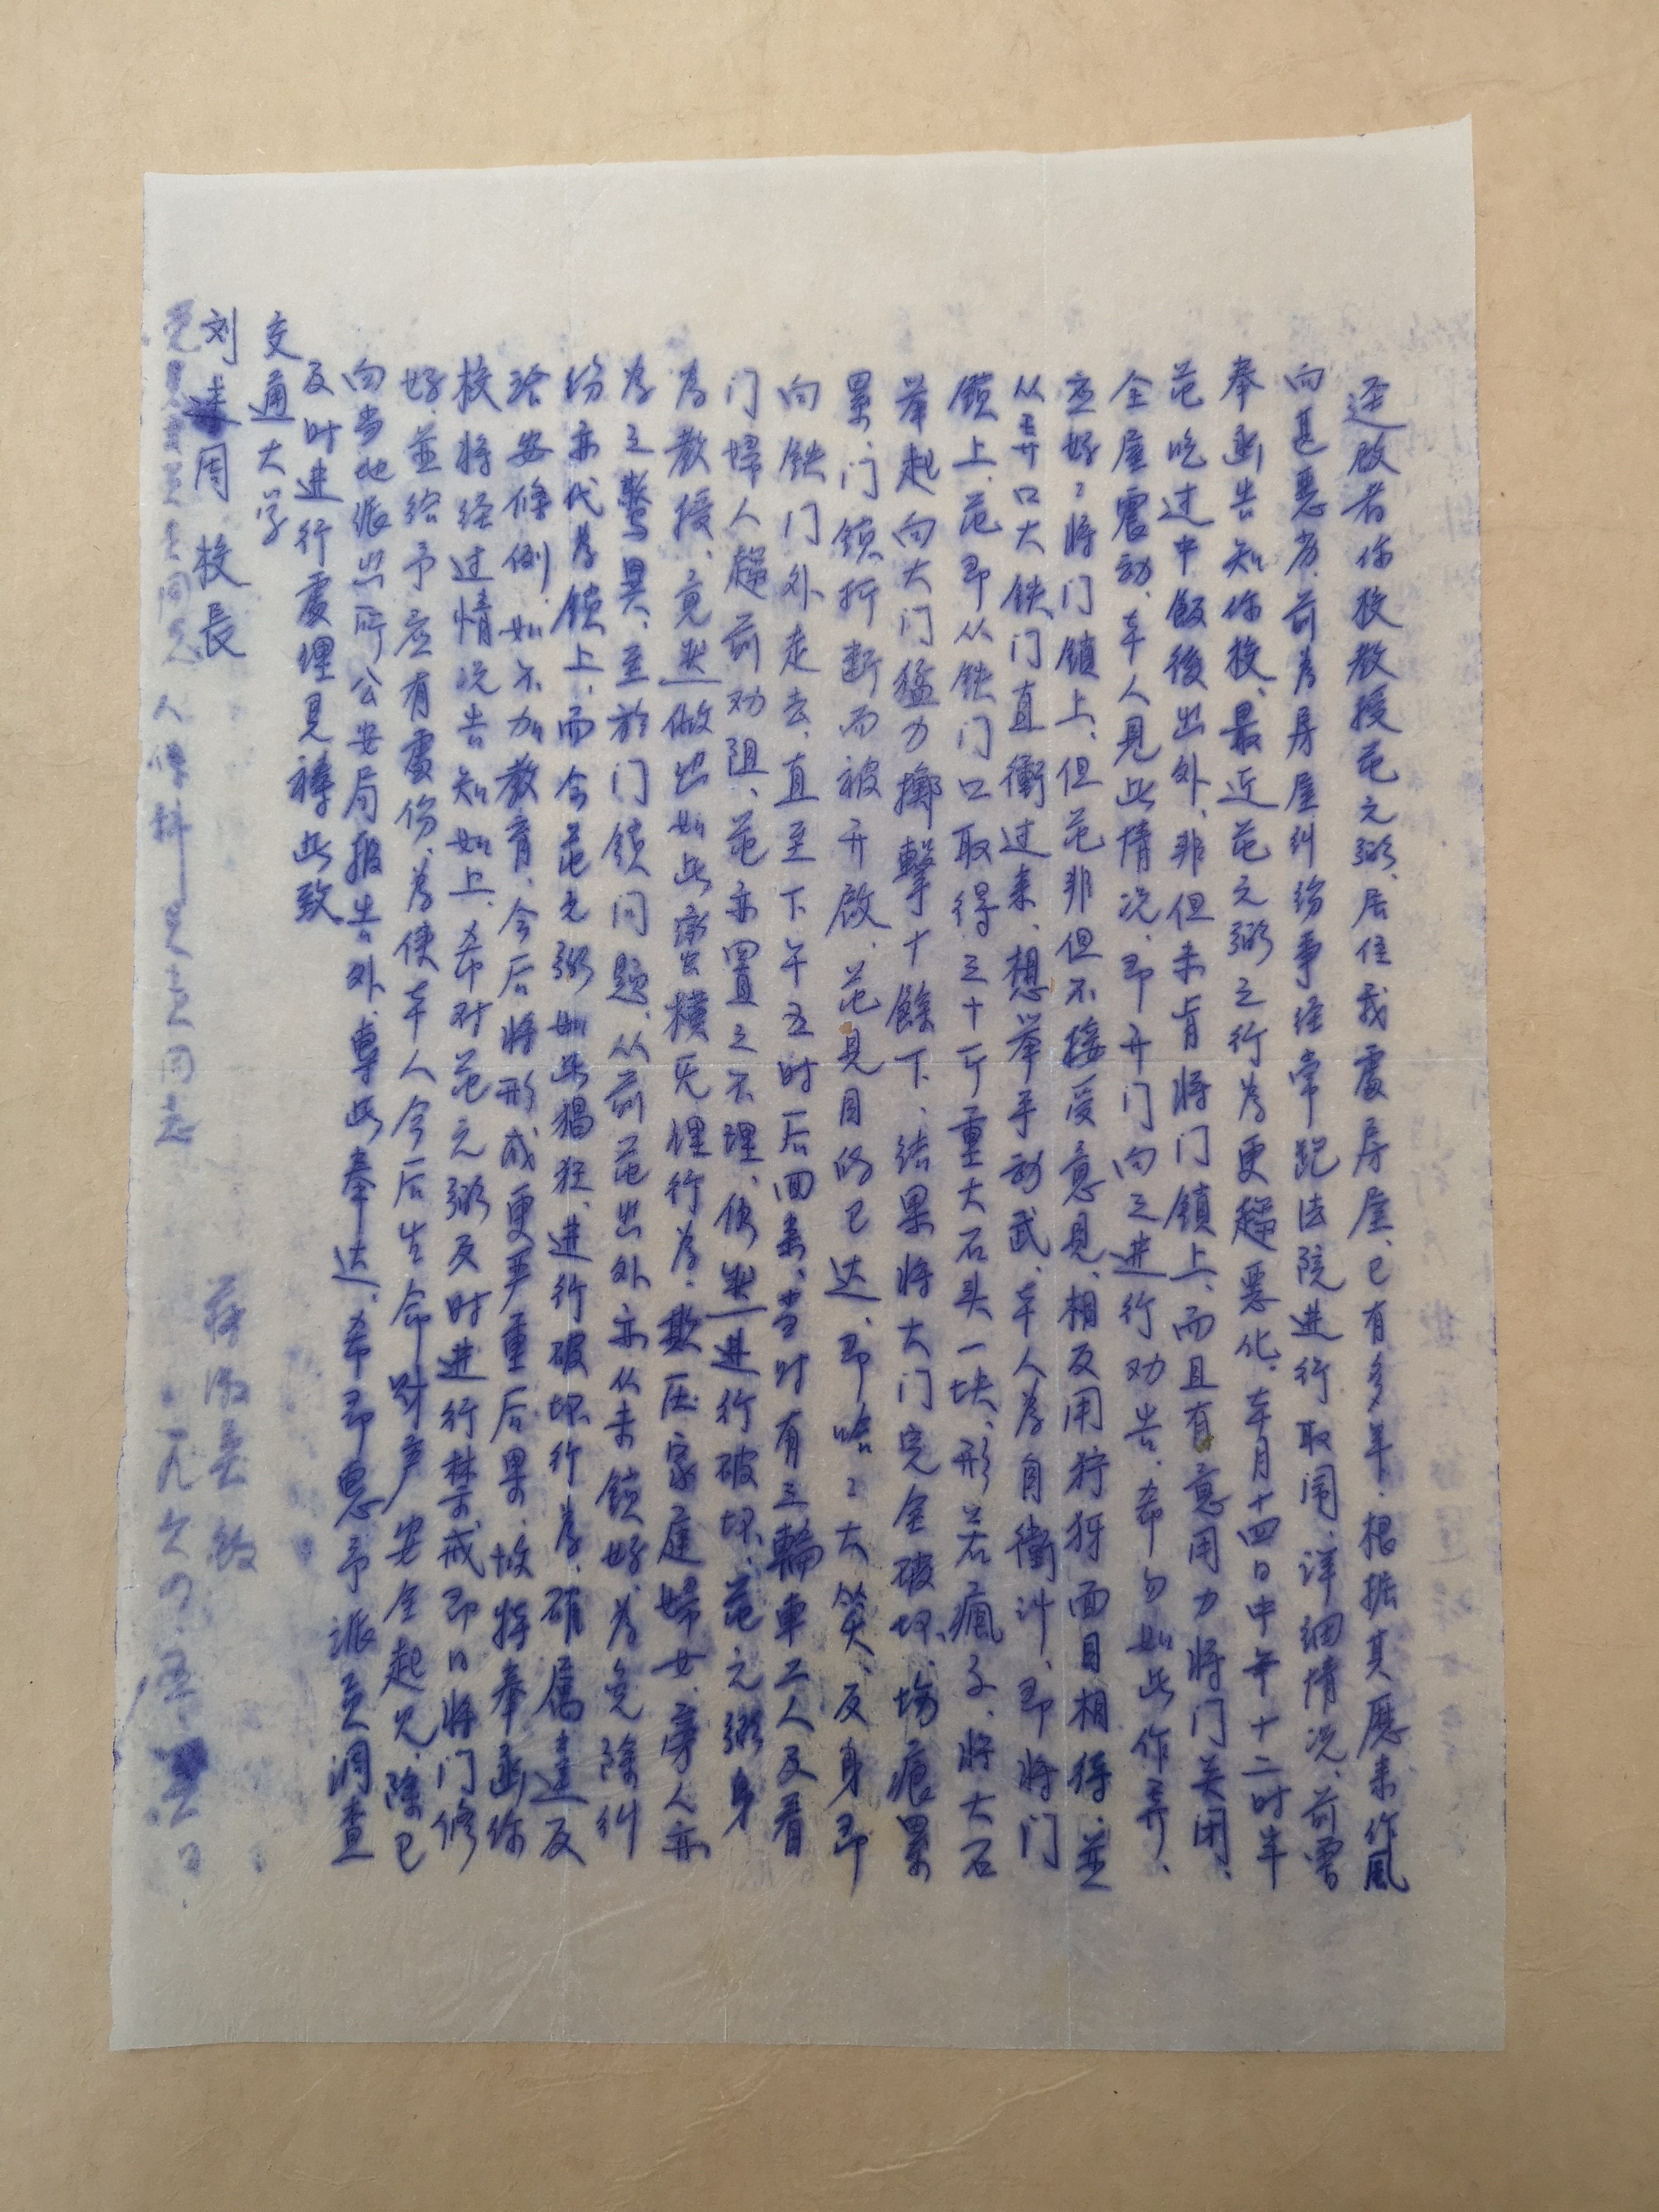 迳啟者你校教授范元弼、居住我處房屋、已有多年、根据其歷来作風
向甚惡劣、前為房屋纠纷事经常跑法院進行取闹、详细情况、前曾
奉函告知你校、最近范元弼之行为更趨惡化、本月十四日中午十二时半
范吃过中飯後出外、非但未肯将门鎖上、而且有意用力将门关闭、
全屋震动、本人見此情况、即开门向之進行劝告、希勿如此作弄、
应好ミ将门鎖上、但范非但不接受意見、相反用狞狞面目相待、並
从弄口大铁门直衝过来、想举手动武、本人为自衛计、即将门
鎖上、范即从铁门口取得三十斤重大石头一块、形若瘋子、将大石
举起向大门猛力擲擊十餘下、结果将大门完全破坏、塲痕累
累、门鎖折断而被开啟、范見目的已达、即哈ミ大笑、反身即
向铁门外走去、直至下午五时后回来、当时有三輪車工人及看
门婦人趨前劝阻、范亦置之不理、依然進行破坏、范元弼身
为教授、竟然做出如此蛮横无理行为、欺压家庭婦女、旁人亦
为之驚異、至於门鎖问题、从前范出外亦从未鎖好、为免除纠
纷亦代为鎖上、而今范元弼如此猖狂、進行破坏行为、確属違反
治安條例、如不加教育、今后将形成更严重后果、故特奉函你
校将经过情况告知如上、希对范元弼及时進行禁戒即日将门修
好、並给予应有處份、为使本人今后生命财产安全起见、除已
向当地派出所公安局報告外、專此奉达、希即惠予派员调查
及时進行處理見禱此致
交通大学
刘 周校長
人保科 同志
一九六四、五、 日